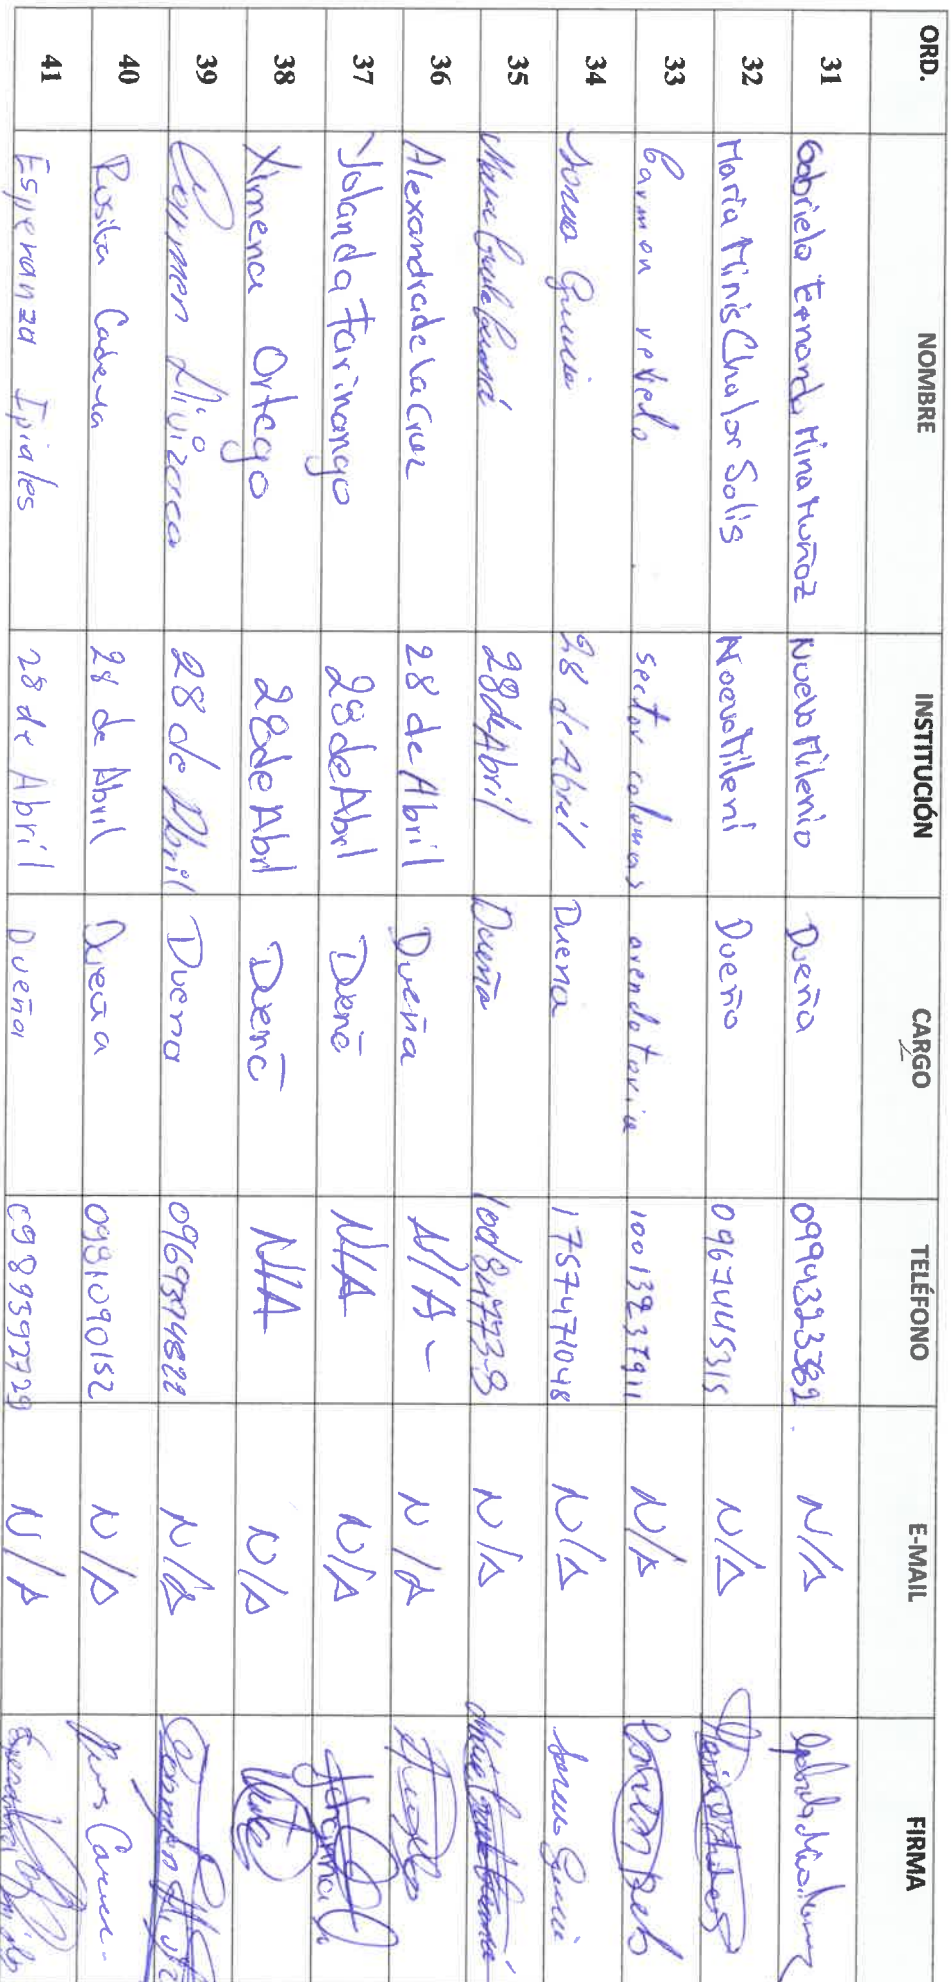 ORD. NOMBRE INSTITUCIÓN CARGO TELÉFONO E-MAIL FIRMA
31 Gabriela Fernanda Mina Muñoz Nuevo Milenio Dueña 0994323382 N/A
32 Maria Minis Chalar Solis Nuevo Mileni Dueño 0967445315 N/A
33 Carmen sector colomas arendataria 1001323791 N/A
34 28 de Abril Duena 1757471048 N/A
35 28 de Abril Dueña 100184773-8 N/A
36 Alexandra de la Cruz 28 de Abril Dueña N/A - N/A
37 Yolanda Farinango 28 de Abril Dueñe N/A N/A
38 Ximena Ortego 28 de Abril N/A N/A
39 Carmen 28 de Abril Duena 0969394822 N/A
40 Rosita Cadena 28 de Abril Dueña 0981090152 N/A
41 Esperanza Ipiales 28 de Abril Dueña 0989592729 N/A